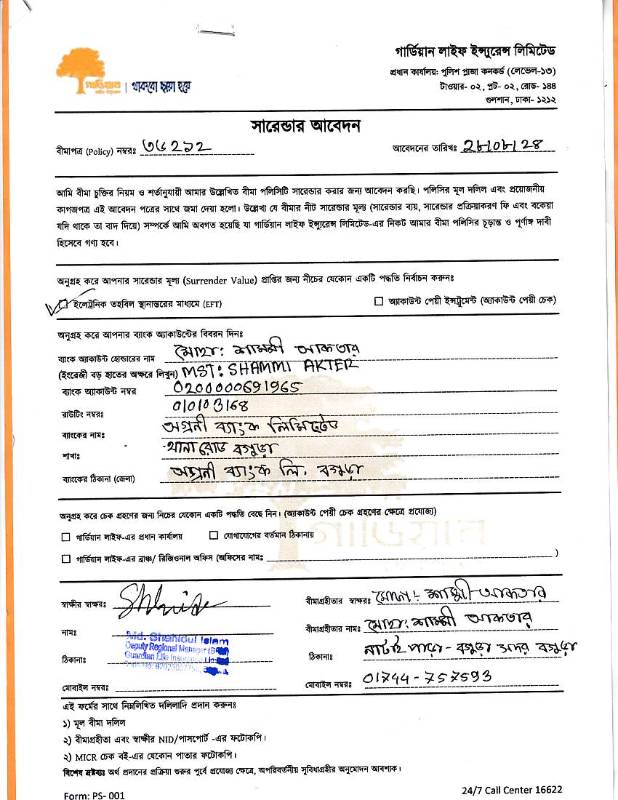 গার্ডিয়ান লাইফ ইন্স্যুরেন্স লিমিটেড
প্রধান কার্যালয়: পুলিশ প্লাজা কনকর্ড (লেভেল-১৩)
টাওয়ার- ০২, প্লট- ০২, রোড- ১৪৪
গুলশান, ঢাকা- ১২১২
গার্ডিয়ান
সারেন্ডার আবেদন
বীমাপত্র (Policy) নম্বরঃ
আবেদনের তারিখঃ
আমি বীমা চুক্তির নিয়ম ও শর্তানুযায়ী আমার উল্লেখিত বীমা পলিসিটি সারেন্ডার করার জন্য আবেদন করছি। পলিসির মূল দলিল এবং প্রয়োজনীয়
কাগজপত্র এই আবেদন পত্রের সাথে জমা দেয়া হলো। উল্লেখ্য যে বীমার নীট সারেন্ডার মূল্য (সারেন্ডার ব্যয়, সারেন্ডার প্রক্রিয়াকরণ ফি এবং বকেয়া
যদি থাকে তা বাদ দিয়ে) সম্পর্কে আমি অবগত হয়েছি যা গার্ডিয়ান লাইফ ইন্স্যুরেন্স লিমিটেড-এর নিকট আমার বীমা পলিসির চূড়ান্ত ও পূর্ণাঙ্গ দাবী
হিসেবে গণ্য হবে।
অনুগ্রহ করে আপনার সারেন্ডার মূল্য (Surrender Value) প্রাপ্তির জন্য নীচের যেকোন একটি পদ্ধতি নির্বাচন করুনঃ
ইলেক্ট্রনিক তহবিল স্থানান্তরের মাধ্যমে (EFT)
অ্যাকাউন্ট পেয়ী ইন্সট্রুমেন্ট (অ্যাকাউন্ট পেয়ী চেক)
অনুগ্রহ করে আপনার ব্যাংক অ্যাকাউন্টের বিবরন দিনঃ
ব্যাংক অ্যাকাউন্ট হোল্ডারের নাম মোছা: শাম্মী আকতার
(ইংরেজী বড় হাতের অক্ষরে লিখুন) MST: SHAMMI AKTER
ব্যাংক অ্যাকাউন্ট নম্বর 0200000691965
রাউটিং নম্বরঃ 010103168
ব্যাংকের নামঃ অগ্রনী ব্যাংক লিমিটেড
শাখাঃ থানারোড বগুড়া
ব্যাংকের ঠিকানা (জেলা) অগ্রনী ব্যাংক লি. বগুড়া
অনুগ্রহ করে চেক গ্রহণের জন্য নিচের যেকোন একটি পদ্ধতি বেছে নিন। (অ্যাকাউন্ট পেয়ী চেক গ্রহণের ক্ষেত্রে প্রযোজ্য)
গার্ডিয়ান লাইফ-এর প্রধান কার্যালয়
যোগাযোগের বর্তমান ঠিকানায়
গার্ডিয়ান লাইফ-এর ব্রাঞ্চ/ রিজিওনাল অফিস (অফিসের নামঃ )
গার্ডিয়ান
স্বাক্ষীর স্বাক্ষরঃ
বীমাগ্রহীতার স্বাক্ষরঃ মোছা: শাম্মী আকতার
নামঃ Md. Shahidul Islam
Deputy Regional Manager
Guardian Life
বীমাগ্রহীতার নামঃ মোছা: শাম্মী আকতার
ঠিকানাঃ
ঠিকানাঃ নাটাই পাড়া - বগুড়া সদর বগুড়া
মোবাইল নম্বরঃ
মোবাইল নম্বরঃ 01744-757593
এই ফর্মের সাথে নিম্নলিখিত দলিলাদি প্রদান করুনঃ
১) মূল বীমা দলিল
২) বীমাগ্রহীতা এবং স্বাক্ষীর NID/পাসপোর্ট -এর ফটোকপি।
২) MICR চেক বই-এর যেকোন পাতার ফটোকপি।
বিশেষ দ্রষ্টব্যঃ অর্থ প্রদানের প্রক্রিয়া শুরুর পূর্বে প্রযোজ্য ক্ষেত্রে, অপরিবর্তনীয় সুবিধাগ্রহীর অনুমোদন আবশ্যক।
Form: PS- 001
24/7 Call Center 16622